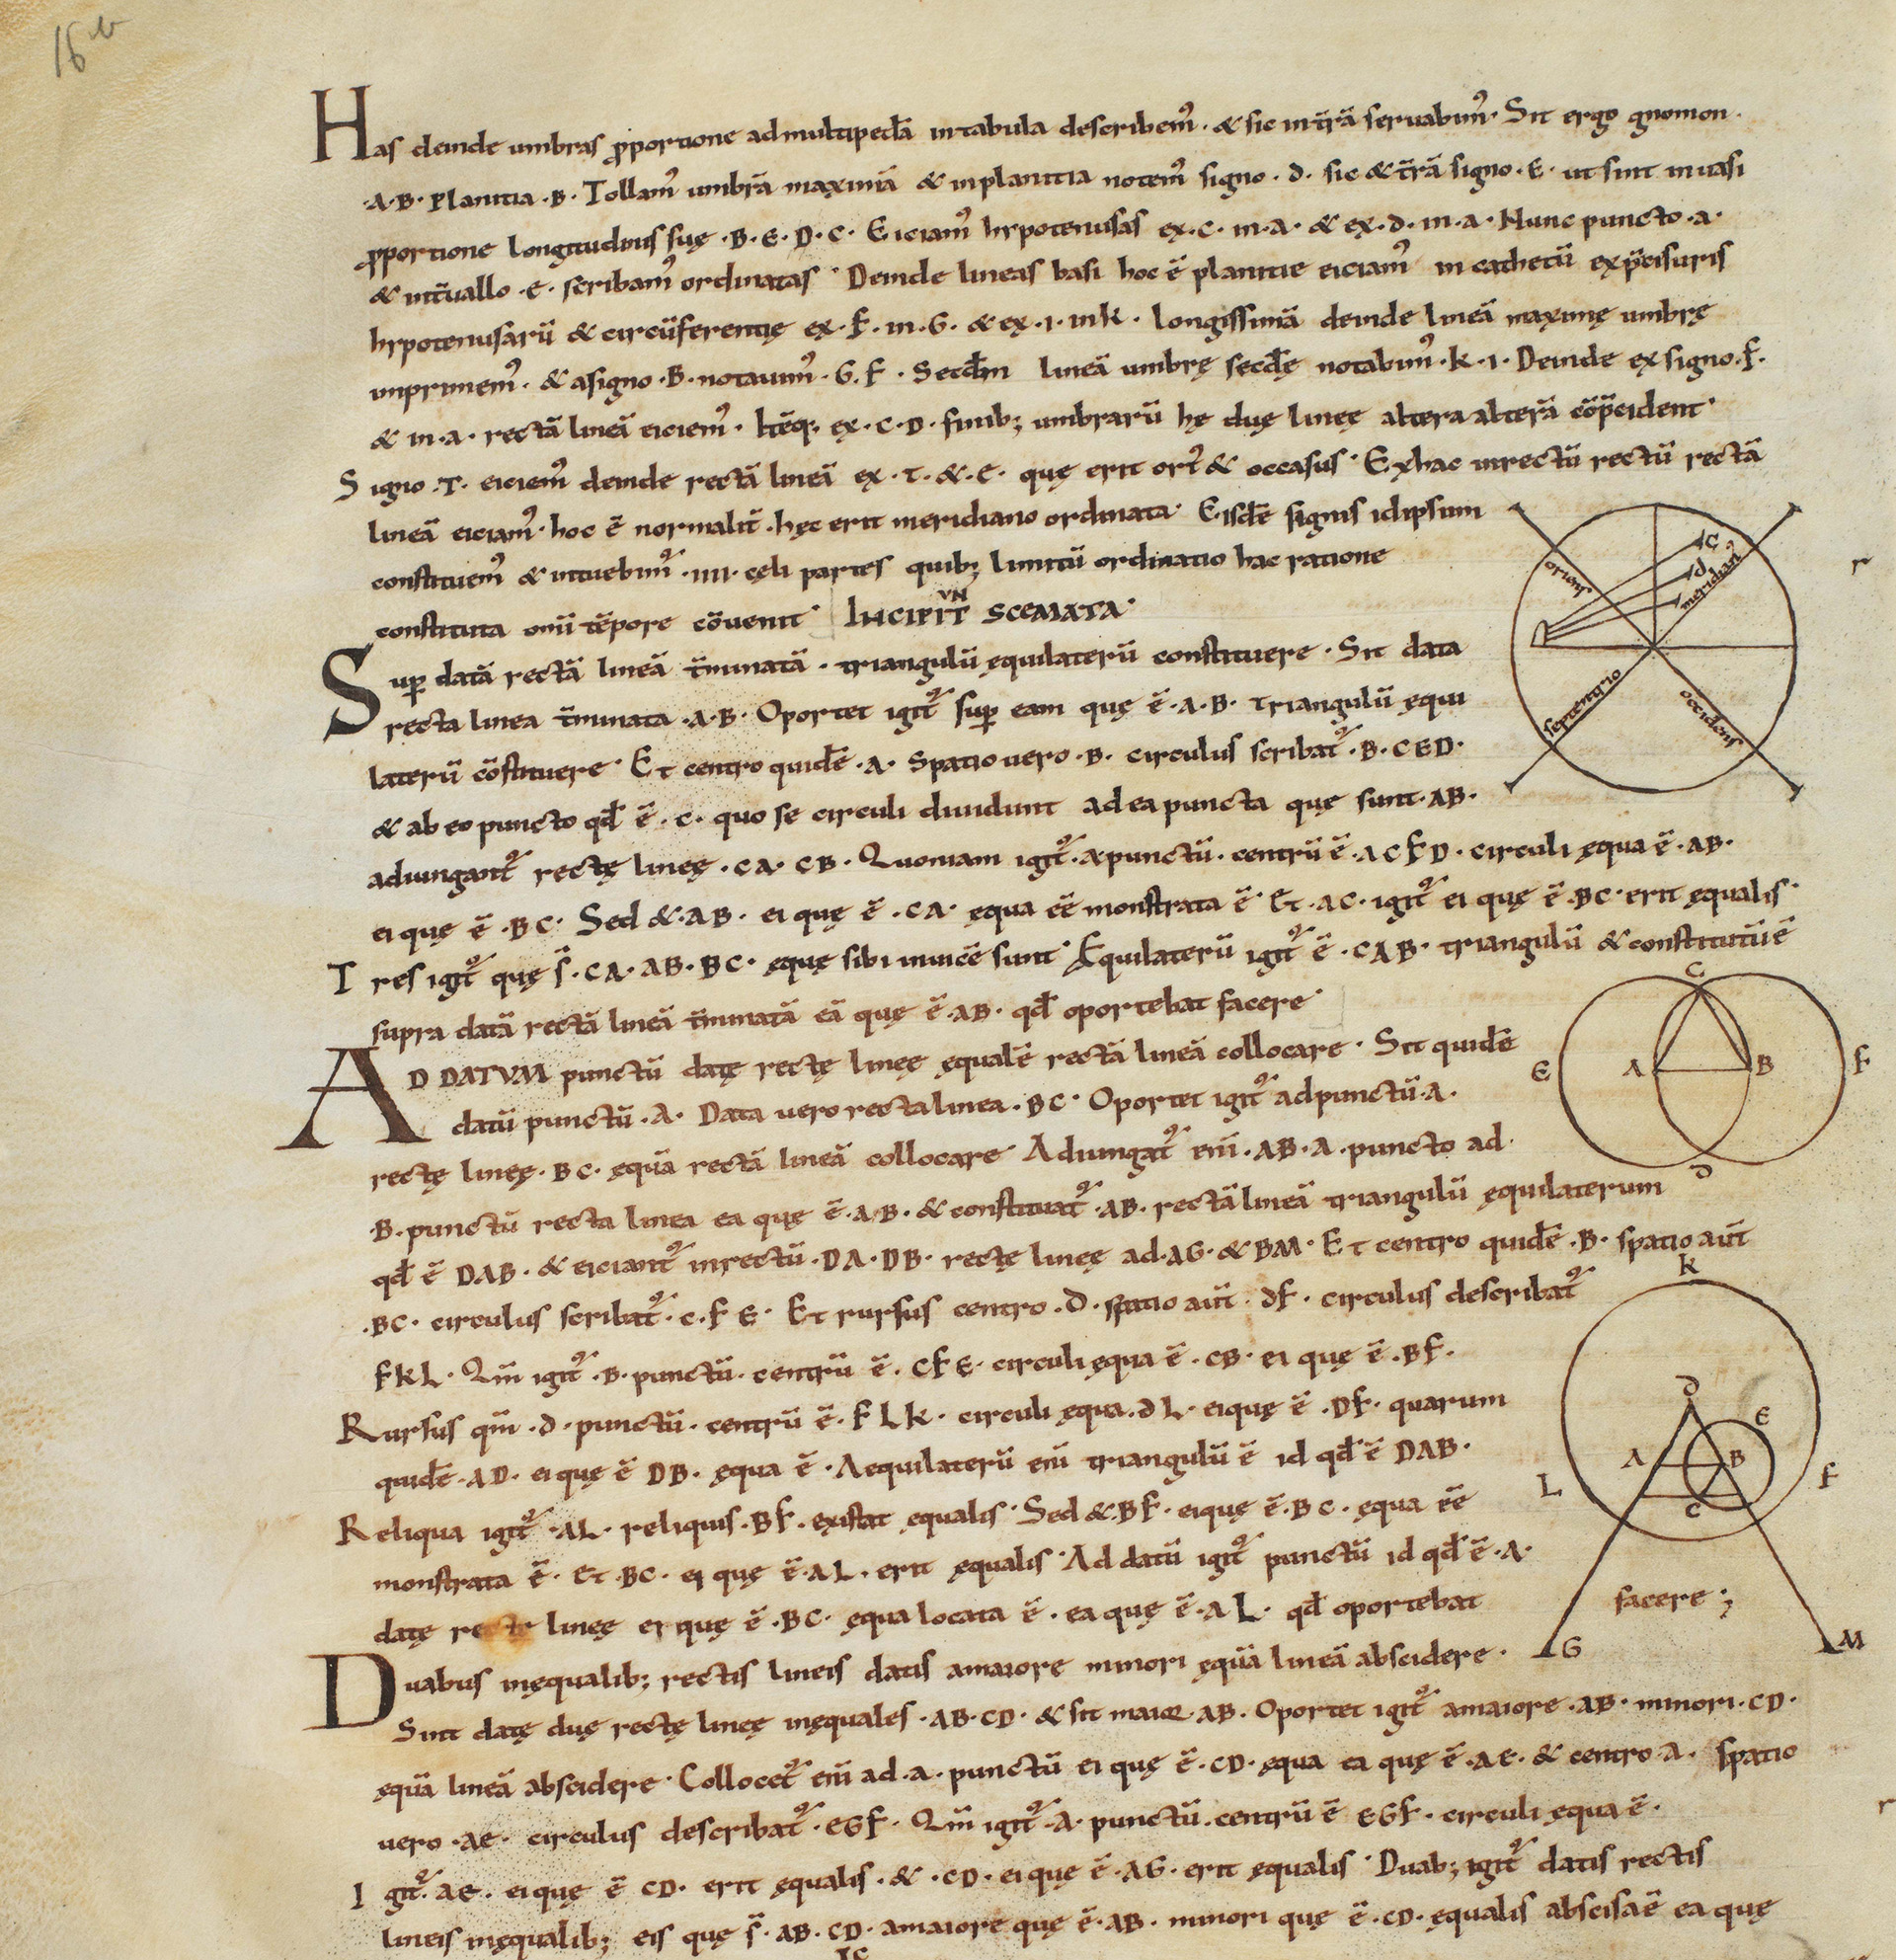 16v
Has deinde umbras ꝓportione ad multipedā in tabula describem᷒. & sic in tr̄ā seruabim᷒. Sit ergo gnomon.
.A.B. Planitia .B. Tollam᷒ umbrā maximā & in planitia notem᷒ signo .d. sic & tr̄ā signo .E. ut sint in uasi
ꝓportione longitudinis suę .B.E.D.C. Eiciam᷒ hypotenusas ex .C. in .A. & ex .d. in .a. Nunc puncto .a.
& int̄uallo .e. scribam᷒ ordinatas. Deinde lineas basi hoc ē planitie eiciam᷒ in cathetū ex p̄cisuris
hypotenusarū & circūferentię ex .F. in .G. & ex .I. in K. longissimā deinde lineā maximę umbrę
inprimem᷒. & a signo .B. notauim᷒ .G.F. Secdm lineā umbrę secdę notabim᷒ .K.I. Deinde ex signo .F.
& in .a. rectā lineā eiciem᷒. Itēq; ex .C.D. finib; umbrarū hę duę linęę altera alterā cōp̄cident.
Signo .T. eiciem᷒ deinde rectā lineā ex .T. & .E. quę erit ort᷒ & occasus. Ex hac in rectū rectū rectā
lineā eiciam᷒. hoc ē normalit̄. hęc erit meridiano ordinata. Eisdē signis idipsum
constituem᷒ & intuebim᷒ .IIII. cęli partes quib; limitū ordinatio hac ratione
constituta omī tēpore cōuenit. INCIPIT VN SCEMATA.
Suꝑ datā rectā lineā t̄minatā. triangulū ęquilaterū constituere. Sit data
recta linea t̄minata .A.B. Oportet igit᷒ suꝑ eam quę ē .A.B. triangulū ęqui
laterū cōstituere. Et centro quidē .A. Spatio uero .B. circulus scribat᷒ .B.CED.
& ab eo puncto qđ ē .c. quo se circuli diuidunt ad ea puncta quę sunt .AB.
adiungant᷒ rectę linęę .CA. CB. Quoniam igit᷒ .A punctū. centrū ē .ACFD. circuli ęqua ē .AB.
ei quę ē .BC. Sed & .AB. ei quę ē .CA. ęqua eē monstrata ē. Et .AC. igit᷒ ei quę ē .BC. erit ęqualis.
Tres igit᷒ quę s̄ .CA. AB. BC. ęquę sibi inuicē sunt. Æquilaterū igit᷒ ē .CAB. triangulū & constitutū ē
supra datā rectā lineā t̄minatā eā quę ē .AB. qđ oportebat facere.
AD DATVM punctū datę rectę linęę ęqualē rectā lineā collocare. Sit quidē
datū punctū .A. Data uero recta linea .BC. Oportet igit᷒ ad punctū .A.
rectę linęę .BC. ęquā rectā lineā collocare. Adiungat᷒ eni̅ .AB. A. puncto ad.
.B. punctū recta linea ea quę ē .A.B. & constituat᷒ .AB. rectā lineā triangulū ęquilaterum
qđ ē DAB. & eiciant᷒ in rectū .DA.DB. rectę linęę ad .AG. & BM. Et centro quidē .B. spatio aut̄
.BC. circulus scribat᷒ .C.F E. Et rursus centro .D. spatio aut̄. dF. circulus describat᷒
FKL. Qm̄ igit᷒ .B. punctū. centrū ē. CFE. circuli ęqua ē .CB. ei quę ē .BF.
Rursus qm̄ .d. punctū. centrū ē. FLK. circuli ęqua. dL. ei quę ē .DF. quarum
quidē .AD. ei quę ē DB. ęqua ē. Aequilaterū eni̅ triangulū ē id qđ ē DAB.
Reliqua igit᷒ .AL. reliquis .BF. existat ęqualis. Sed & .BF. ei quę ē .BC. ęqua eē
monstrata ē. Et .BC. ei quę ē .AL. erit ęqualis. Ad datū igit᷒ punctū id qđ ē .A.
datę rectę linęę ei quę ē .BC. ęqua locata ē. ea quę ē .AL. qđ oportebat facere;
Duabus inęqualib; rectis lineis datis a maiore minori ęquā lineā abscidere.
Sint datę duę rectę linęę inęquales .AB. CD. & sit maior AB. Oportet igit᷒ a maiore .AB. minori .CD.
ęquā lineā abscidere. Collocet᷒ eni̅ ad .a. punctū ei quę ē .CD. ęqua ea quę ē .AE. & centro .A. spatio
uero .AE. circulus describat᷒ .EGF. Qm̄ igit᷒ .A. punctū. centrū ē EGF. circuli ęqua ē.
Igit᷒. AE. ei quę ē CD. erit ęqualis. & .CD. ei quę ē .AG. erit ęqualis. Duab; igit᷒ datis rectis
lineis inęqualib; eis quę s̄ .AB. CD. a maiore quę ē .AB. minori quę ē .CD. ęqualis abscisa ē ea quę
c
d
oriens
meridian᷒
septentrio
occidens
C
E A B F
D
K
D
E
A B
L F
C
G M